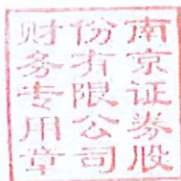 南京证券股
份有限公司
财务专用章